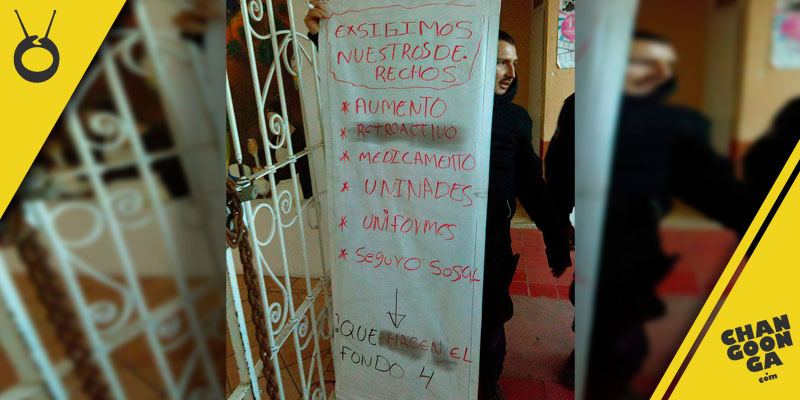 EXSIGIMOS
NUESTROS DE.
RECHOS
* AUMENTO
* RETROACTIVO
* MEDICAMENTO
* UNINADES
* UNIFORMES
* SEGURO SOSAL
?QUE HACEN EL
FONDO 4
CHAN
GOON
GA
.com